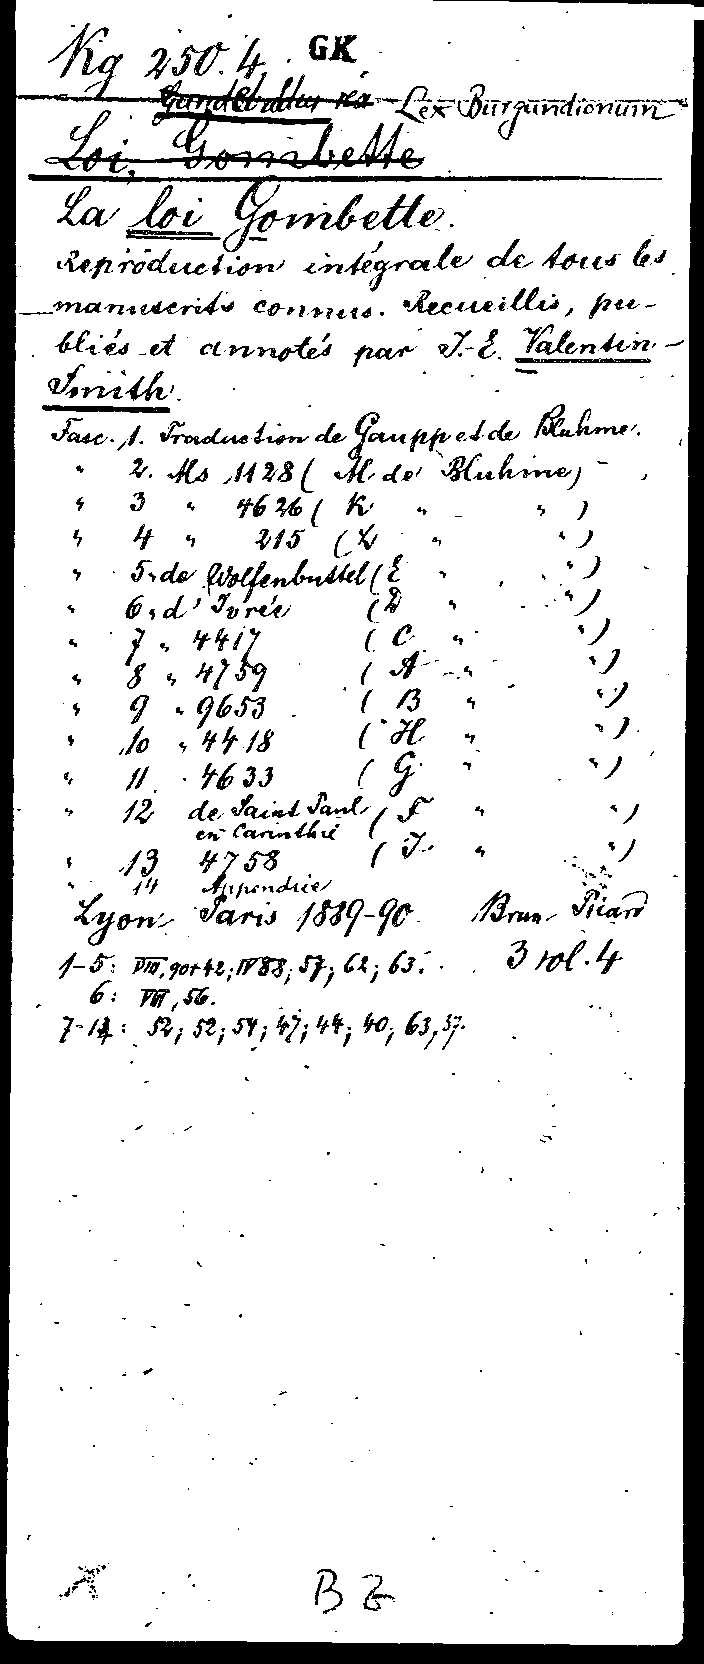 Kg 250.4. GK
Lex Burgundionum
Loi Gombette
La loi Gombette.
Reproduction intégrale de tous les
manuscrits connus. Recueillis, pu-
bliés et annotés par J.-E. Valentin-
Smith.
Fasc. 1. Traduction de Gaupp et de Bluhme.
" 2. Ms 1128 ( M de Bluhme)
" 3 " 4626 ( K " " )
" 4 " 215 ( L " " )
" 5 " de Wolfenbuttel ( E " " )
" 6 " d'Ivrée ( D " " )
" 7 " 4417 ( C " " )
" 8 " 4759 ( A " " )
" 9 " 9653 ( B " " )
" 10 " 4418 ( H " " )
" 11 " 4633 ( G " " )
" 12 de Saint Paul ( F " " )
en Carinthie
" 13 4758 ( J " " )
" 14 Appendice
Lyon Paris 1889-90 Brun Picard
1-5: VIII, 90+42; IV 88; 57; 62; 63. 3 vol. 4
6: VIII, 56.
7-14: 52; 52; 54; 47; 44; 40; 63, 37.
B Z